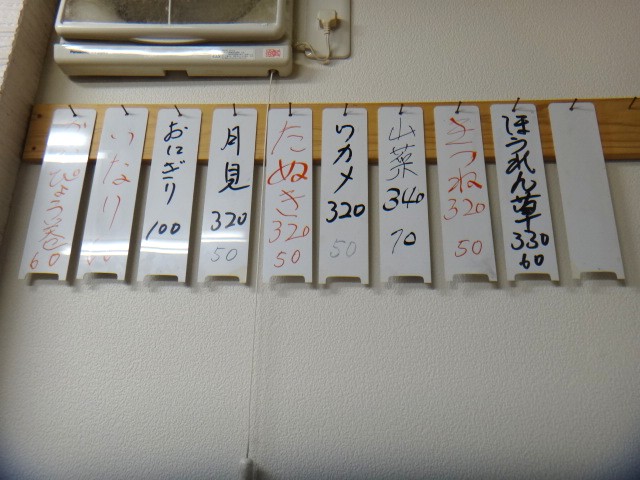 ほうれん草
330
60
きつね
320
50
山菜
340
70
ワカメ
320
50
たぬき
320
50
月見
320
50
おにぎり
100
いなり
かんぴょう巻
60